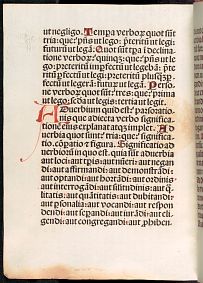 ut negligo. Tempa verboꝝ quot sūt
tria: que: p̄ns ut lego: p̄teritū ut legi:
futurū ut legā. Quot sūt tpa ī declina-
tione verboꝝ: quinqꝫ: que: p̄ns ut
lego: p̄teritū īpfectū ut legebā: p̄teritū
pfectū ut legi: p̄teritū plusqꝫp̄-
fectū ut legerā: futurū ut legā. Perso-
ne verboꝝ quot sūt: tres: que: prima
ut lego: secūda ut legis: tertia ut legit.
Aduerbium quid est: pars oratio-
nis que adiecta verbo significa-
tionē eius explanat atqꝫ implet. Ad
uerbio quot sūt: tria: que: significa-
tio, cōpatio ⁊ figura. Significatio ad
uerbioꝝ in quo est: quia sūt aduerbia
aut loci: aut tpis: aut nūeri: aut negan
di: aut affirmandi: aut demonstrādi:
aut optandi: aut hortādi: aut ordinis:
aut interrogādi: aut similitudinis: aut q̄-
litatis: aut quātitatis: aut dubitandi:
aut psonalia: aut vocandi: aut respon
dendi: aut sepandi: aut iurādi: aut eli-
gendi: aut congregandi: aut phibēn